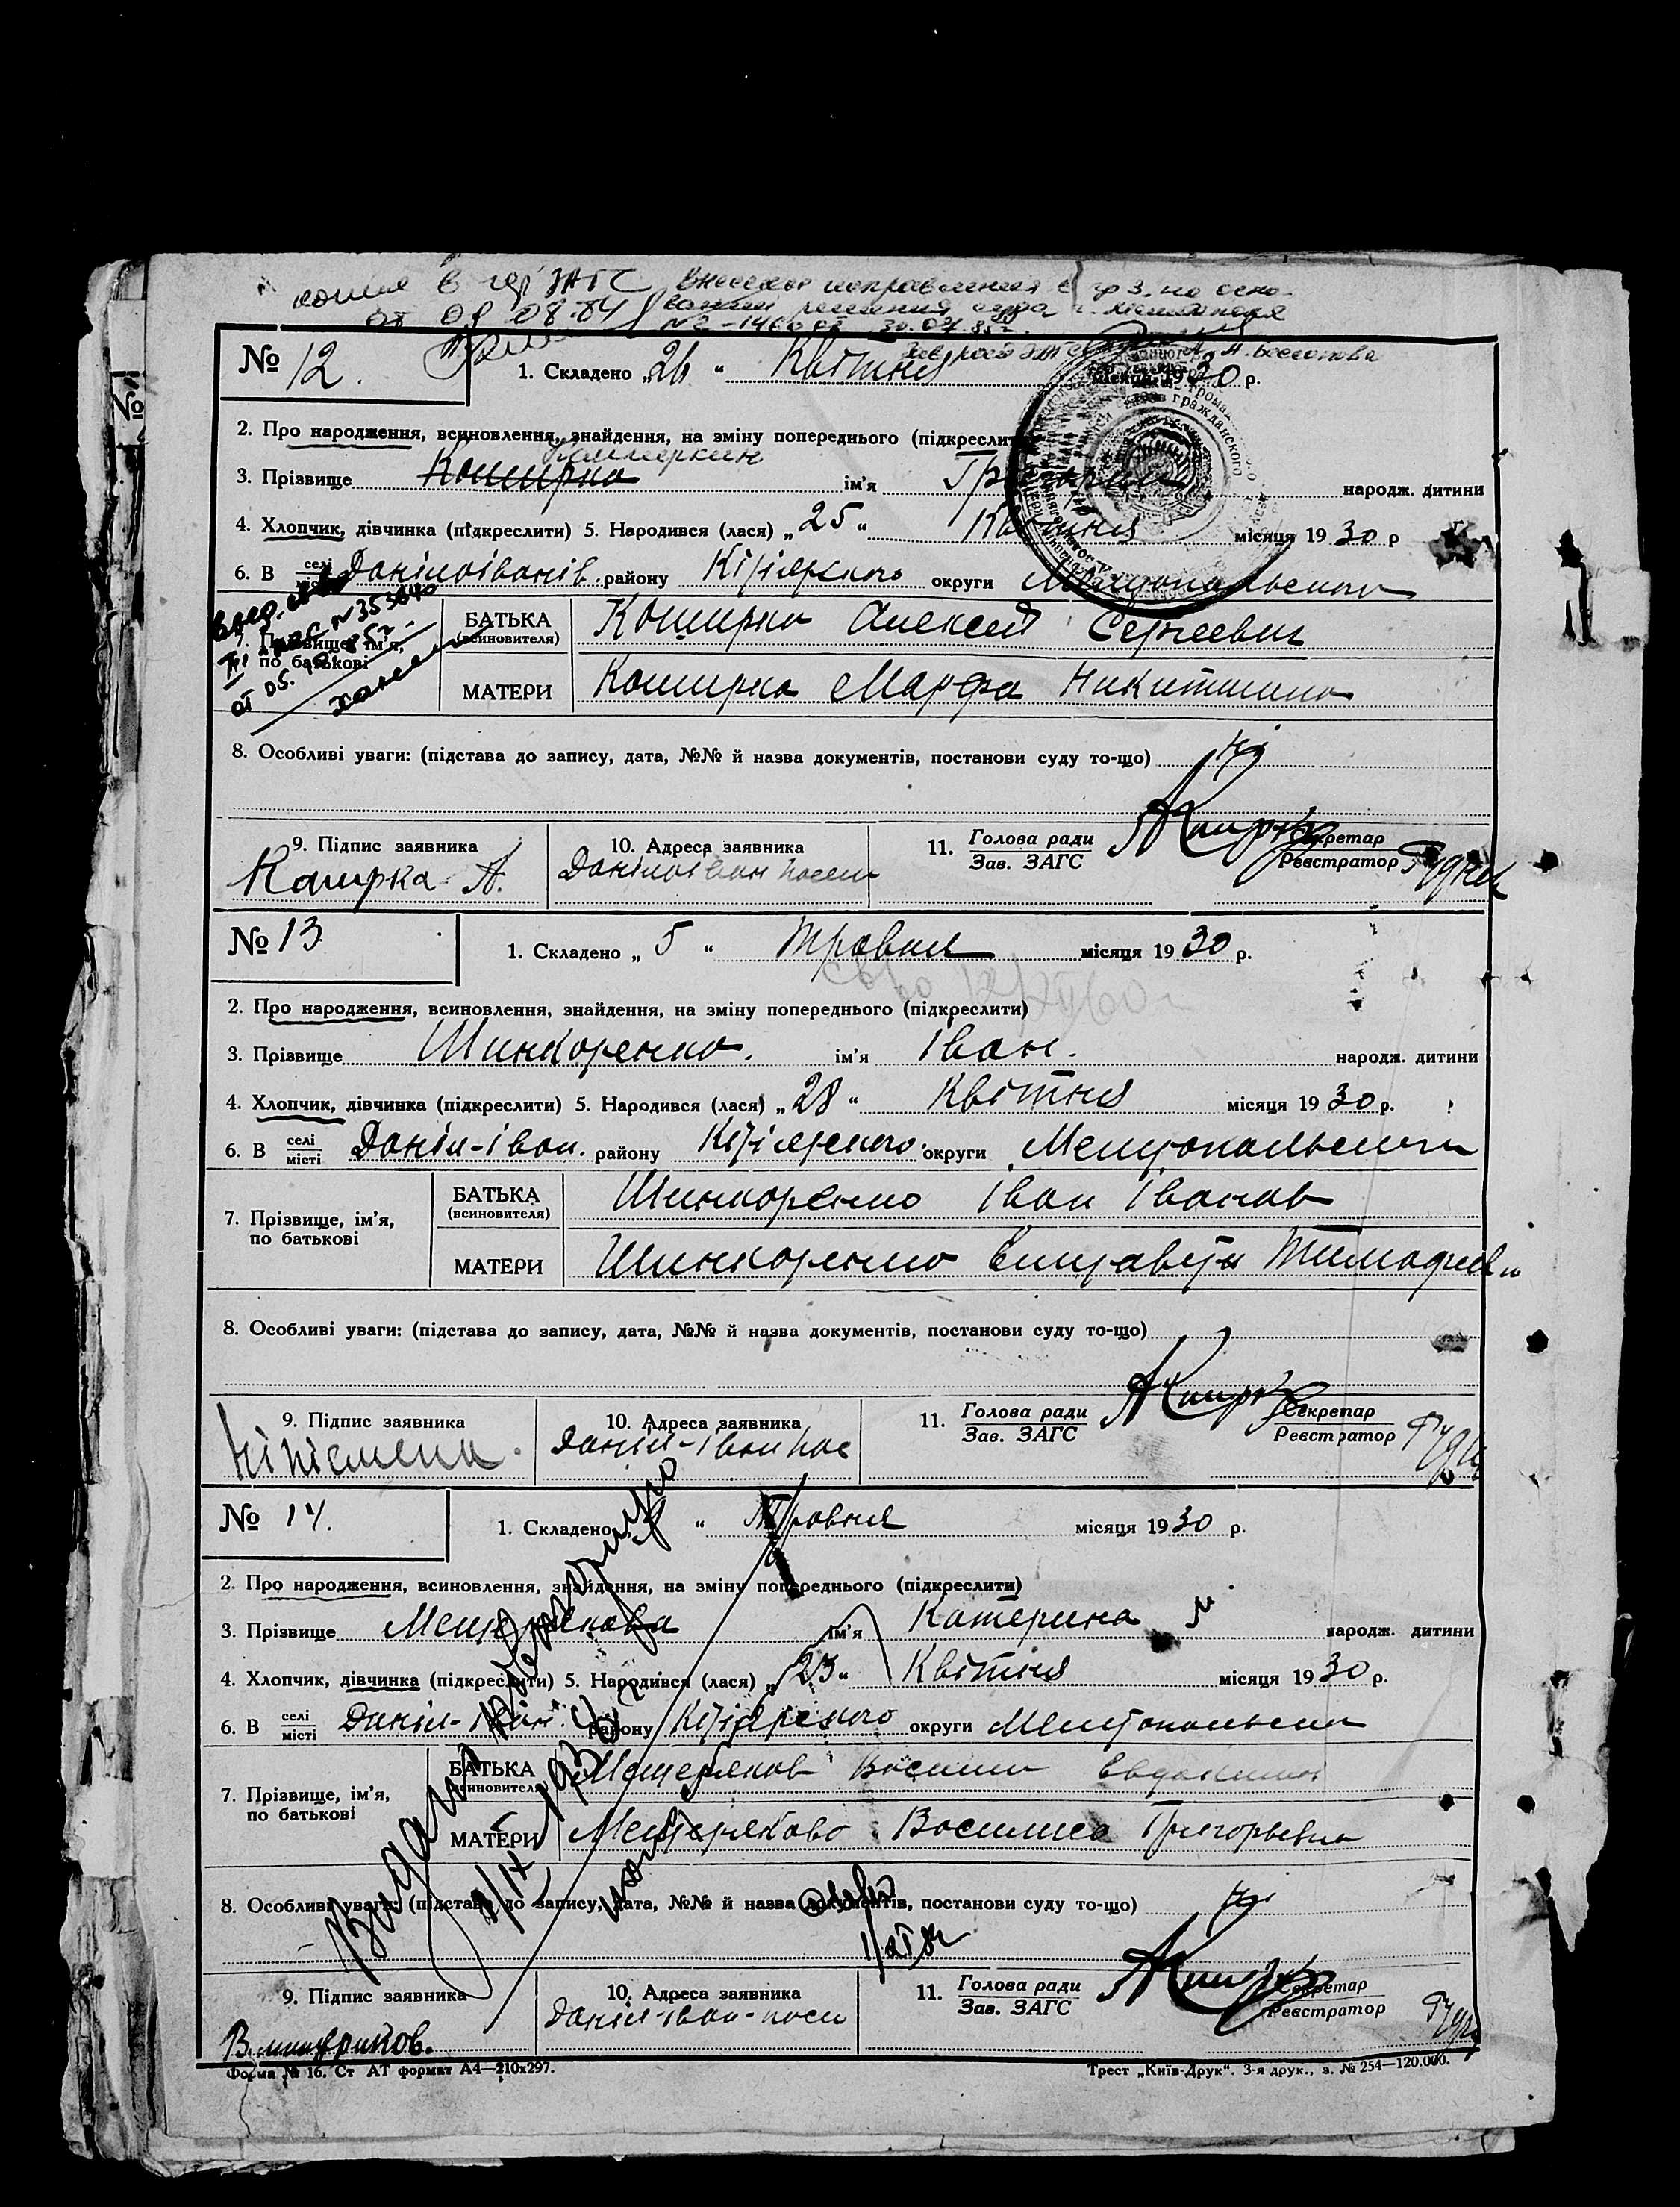 копия в гор ЗАГС Внесено исправление в гр 3. на осно-
от 08 08.84 вании решения суда г. Мелитополя
№2-1460 от 30.07.85 г.
№ 12. 1. Складено „26“ Квітня місяця 1930 р.
2. Про народження, всиновлення, знайдення, на зміну попереднього (підкреслити)
Каширкин
3. Прізвище Коширка ім'я Григорий народж. дитини
4. Хлопчик, дівчинка (підкреслити) 5. Народився (лася) „25“ Квітня місяця 1930 р
6. В селі місті Данілоіванів. району Кізіярского округи Мелітопальского
7. Прізвище, ім'я, по батькові
БАТЬКА (всиновителя) Коширка Алексей Сергеевич
МАТЕРИ Коширка Марфа Никитишна
8. Особливі уваги: (підстава до запису, дата, №№ й назва документів, постанови суду то-що) ні
9. Підпис заявника 10. Адреса заявника 11. Голова ради Зав. ЗАГС Секретар Реєстратор
Каширка А. Данілоіван посел
№ 13. 1. Складено „5“ Травня місяця 1930 р.
2. Про народження, всиновлення, знайдення, на зміну попереднього (підкреслити)
3. Прізвище Шинкоренко. ім'я Іван. народж. дитини
4. Хлопчик, дівчинка (підкреслити) 5. Народився (лася) „28“ Квітня місяця 1930 р.
6. В селі місті Даніл-Іван. району Кізіярского округи Мелітопальского
7. Прізвище, ім'я, по батькові
БАТЬКА (всиновителя) Шинкоренко Іван Іванов
МАТЕРИ Шинкоренко Елизавета Тимофиевн
8. Особливі уваги: (підстава до запису, дата, №№ й назва документів, постанови суду то-що)
9. Підпис заявника 10. Адреса заявника 11. Голова ради Зав. ЗАГС Секретар Реєстратор
Ніпісмена. Даніл-Іван пос
№ 14. 1. Складено „ “ Травня місяця 1930 р.
2. Про народження, всиновлення, знайдення, на зміну попереднього (підкреслити)
3. Прізвище Мещерякова ім'я Катерина народж. дитини
4. Хлопчик, дівчинка (підкреслити) 5. Народився (лася) „23“ Квітня місяця 1930 р.
6. В селі місті Даніл-Іван. району Кізіярского округи Мелітопальский
7. Прізвище, ім'я, по батькові
БАТЬКА (всиновителя) Мещеряков Василий Евдокимов
МАТЕРИ Мещерякова Василиса Григорьевна
8. Особливі уваги: (підстава до запису, дата, №№ й назва документів, постанови суду то-що) ні
9. Підпис заявника 10. Адреса заявника 11. Голова ради Зав. ЗАГС Секретар Реєстратор
Даніл-Іван-посел
Форма № 16. Ст АТ формат А4—210х297. Трест „Київ-Друк“. 3-я друк., з. № 254—120.000.